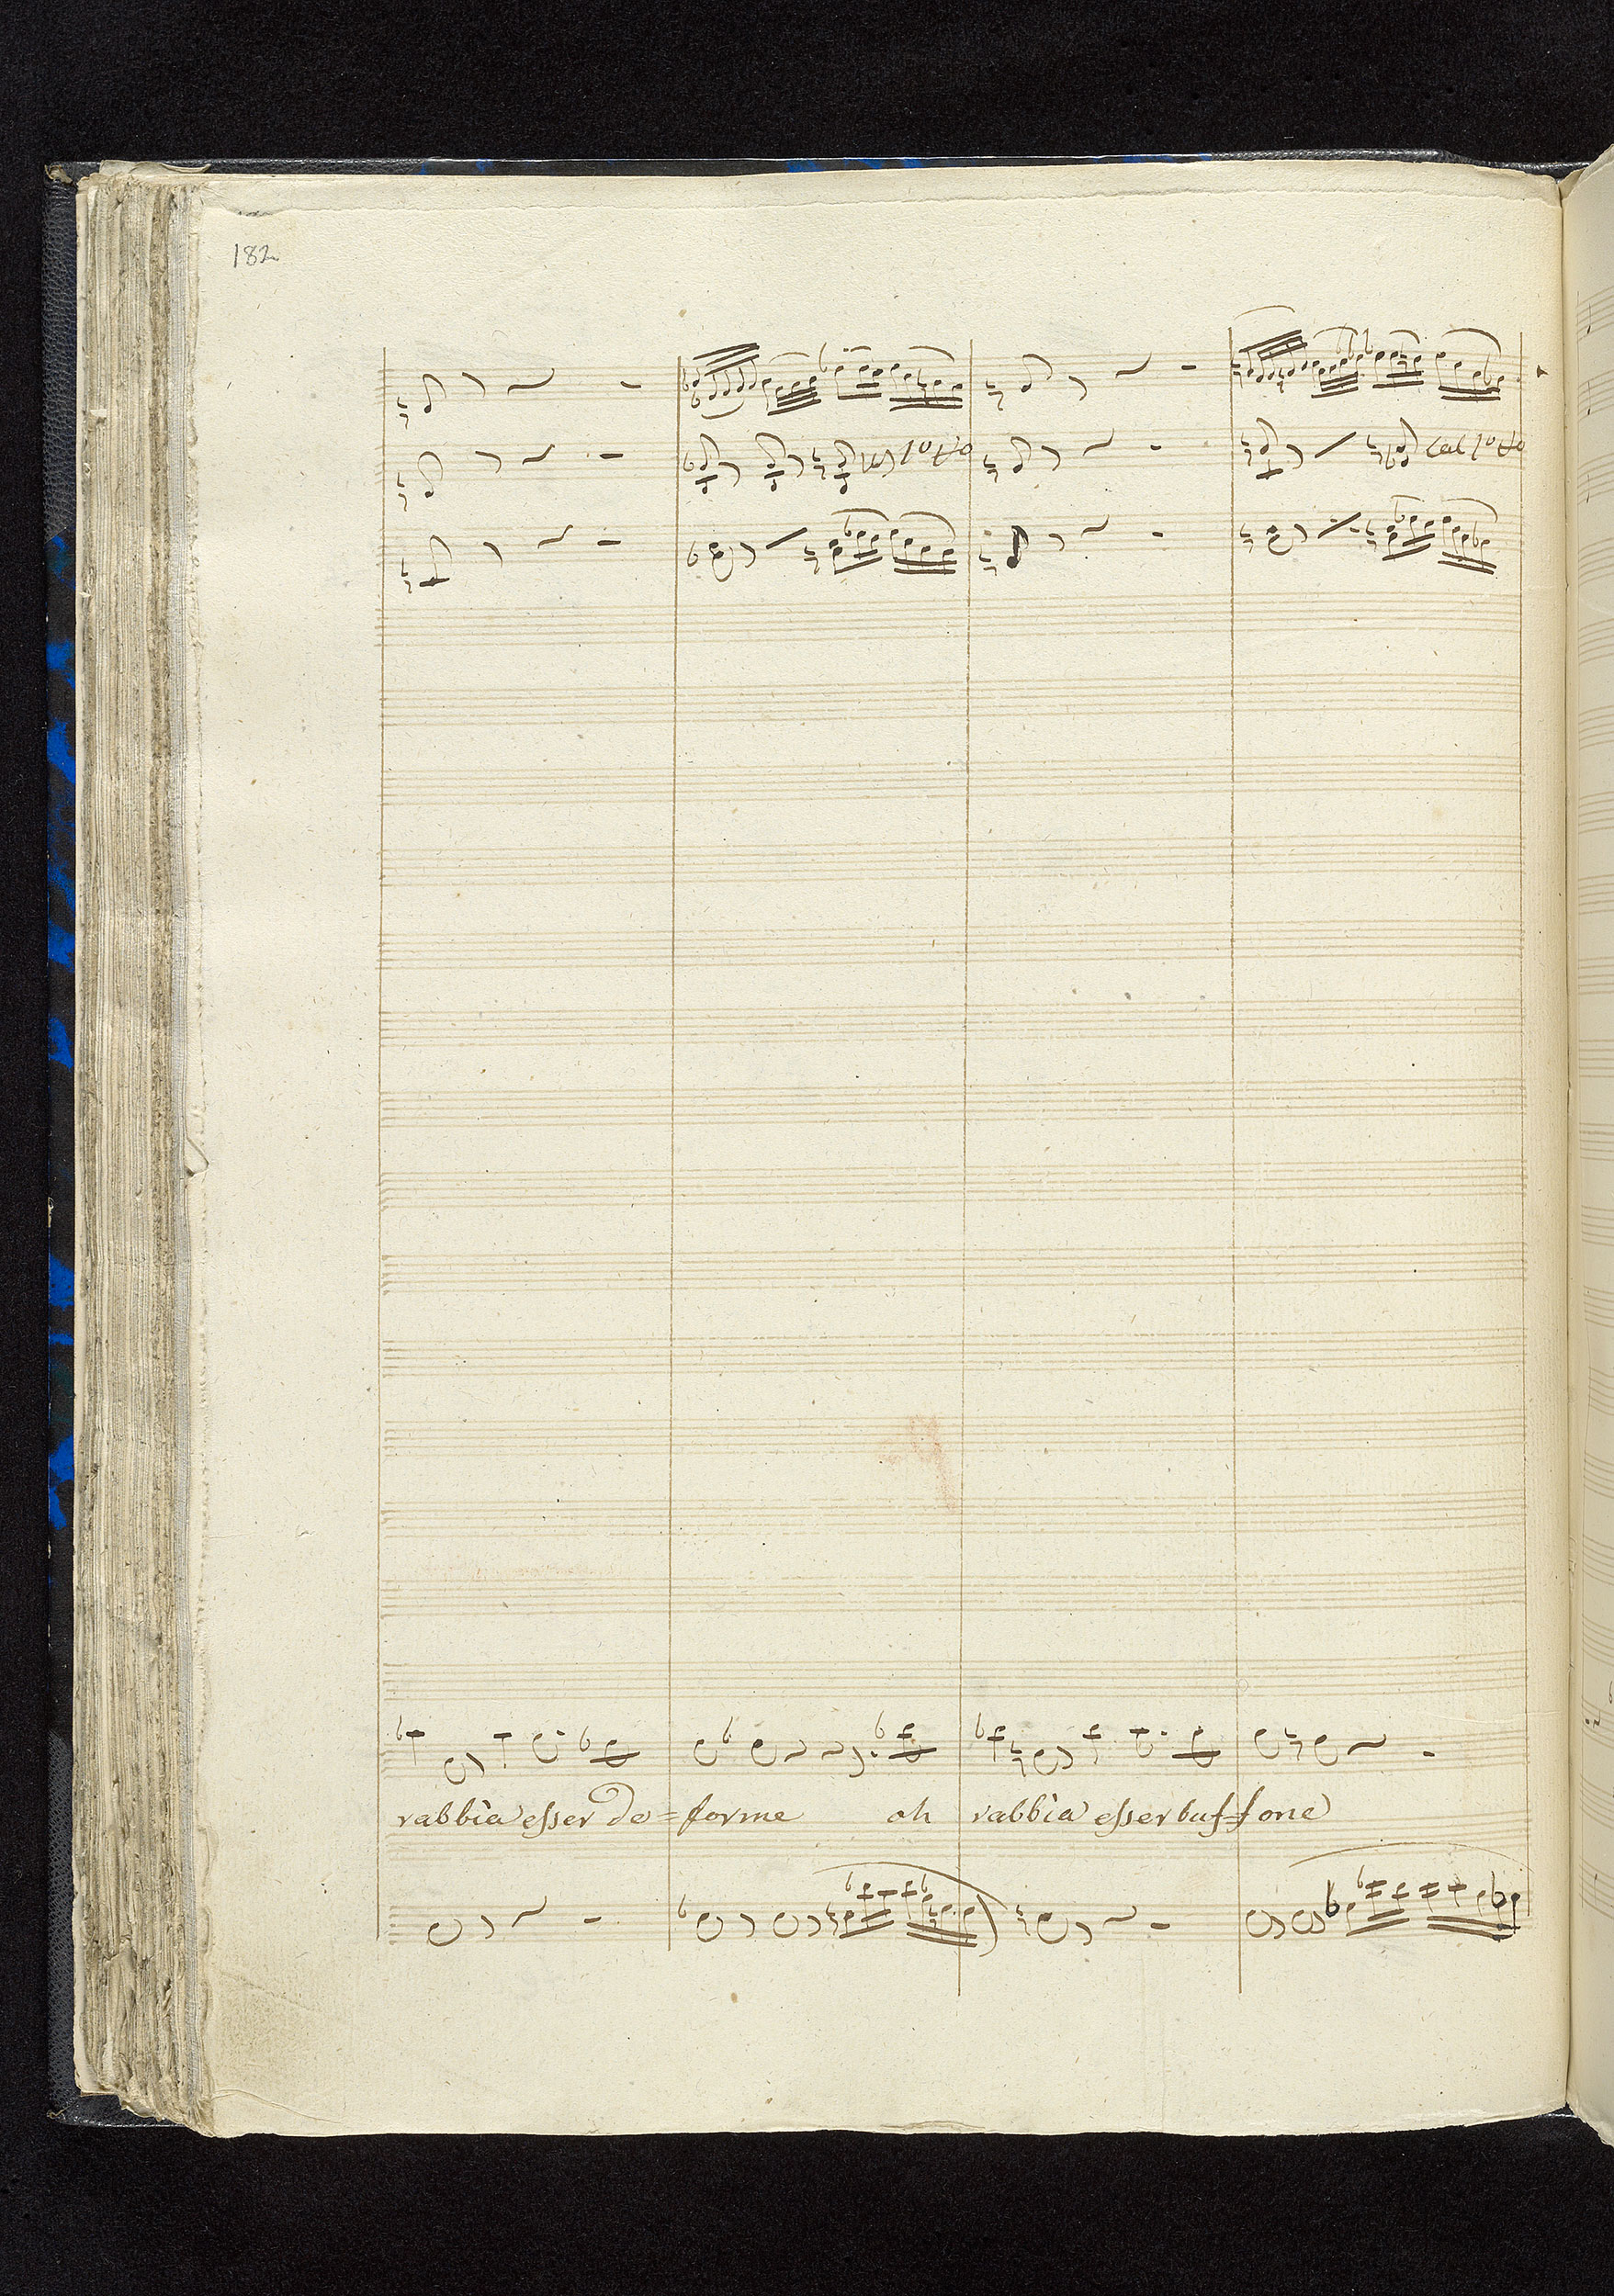 182
col 1º tº
rabbia esser de=forme oh rabbia esser buf=fone